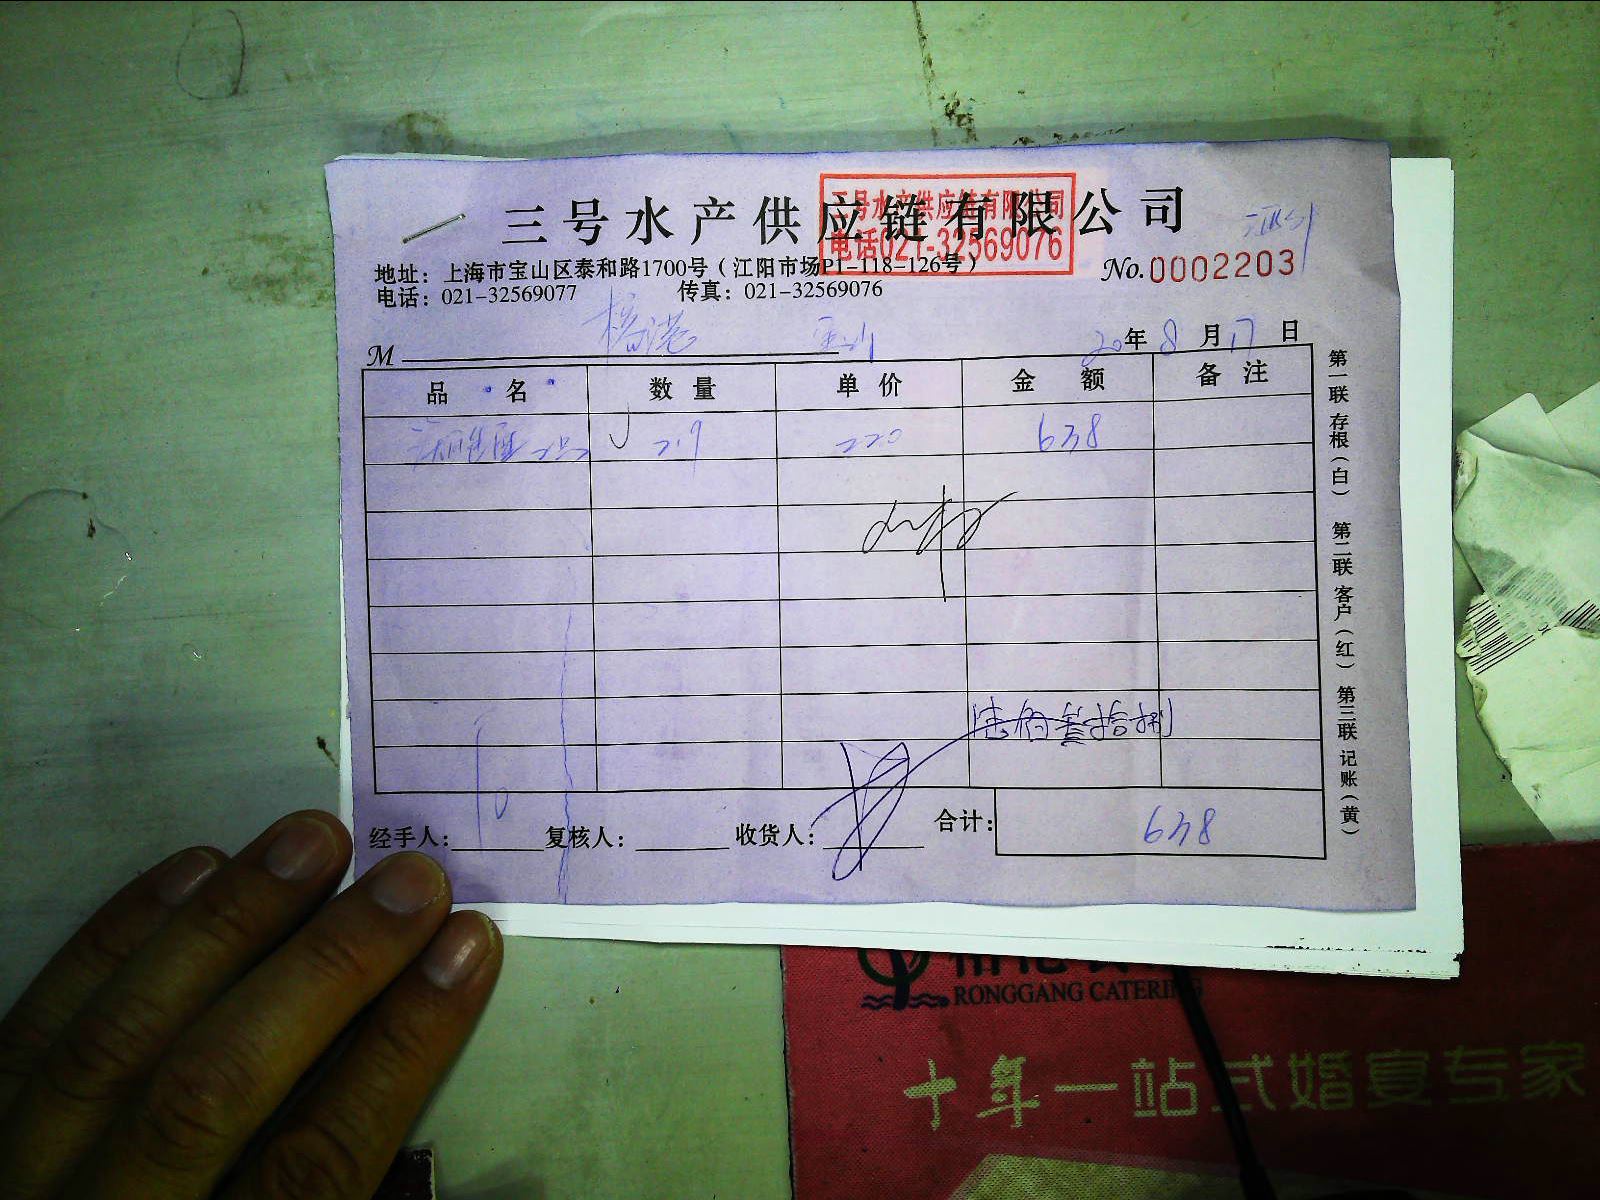 三号水产供应链有限公司
三号水产供应链有限公司
电话021-32569076
地址：上海市宝山区泰和路1700号（江阳市场P1-118-126号）
No.0002203
电话：021-32569077 传真：021-32569076
M 榕港
20年8月17日
品名 数量 单价 金额 备注
2.9 220 638
陆佰叁拾捌
经手人： 复核人： 收货人： 合计： 638
第一联存根（白） 第二联客户（红） 第三联记账（黄）
RONGGANG CATERING
十年一站式婚宴专家